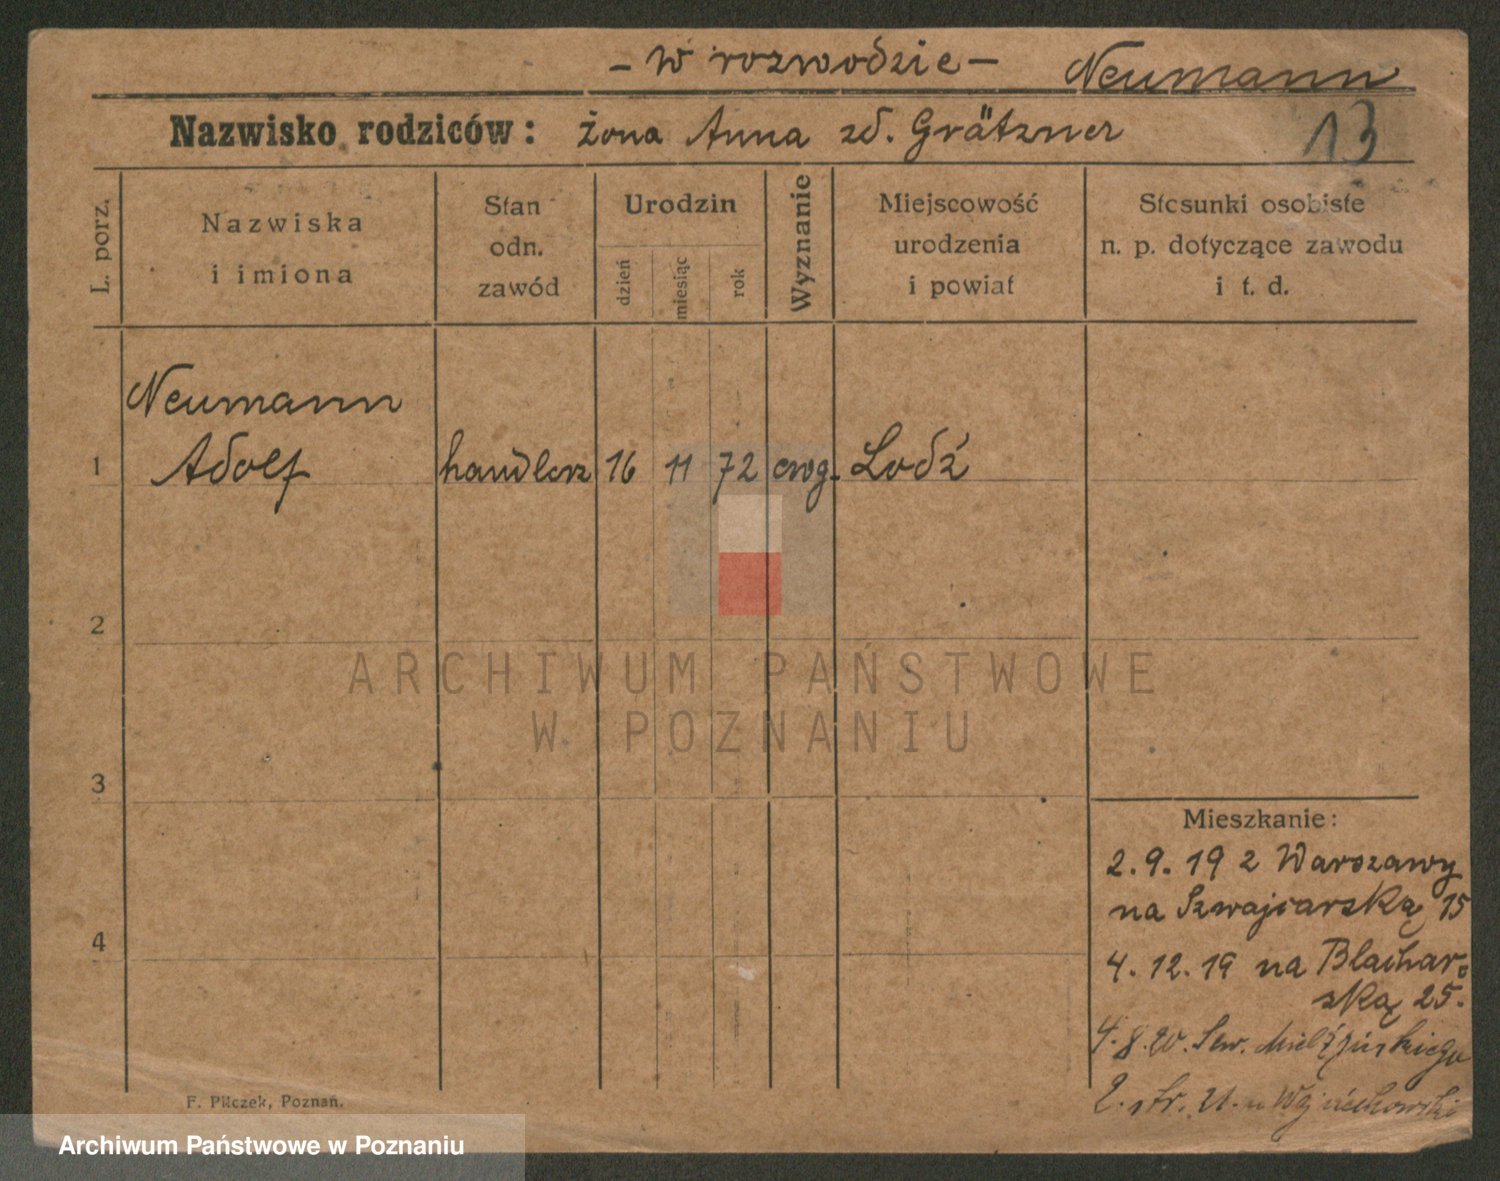 - W rozwodzie - Neumann
Nazwisko rodziców: żona Anna zd. Grätzner 13
L. porz.
Nazwiska
i imiona
Stan
odn.
zawód
Urodzin
dzień
miesiąc
rok
Wyznanie
Miejscowość
urodzenia
i powiat
Stosunki osobiste
n. p. dotyczące zawodu
i t. d.
Neumann
1 Adolf handlerz 16 11 72 ewg. Lodź
2
ARCHIWUM PAŃSTWOWE
W POZNANIU
3
Mieszkanie:
2.9.19 z Warszawy
na Szwajcarską 15
4
4.12.19 na Blachar-
ską 25.
4.8.20. Sew. Mielżyńskiego
2. str. 21. Wojciechowski
F. Pilczek, Poznań.
Archiwum Państwowe w Poznaniu